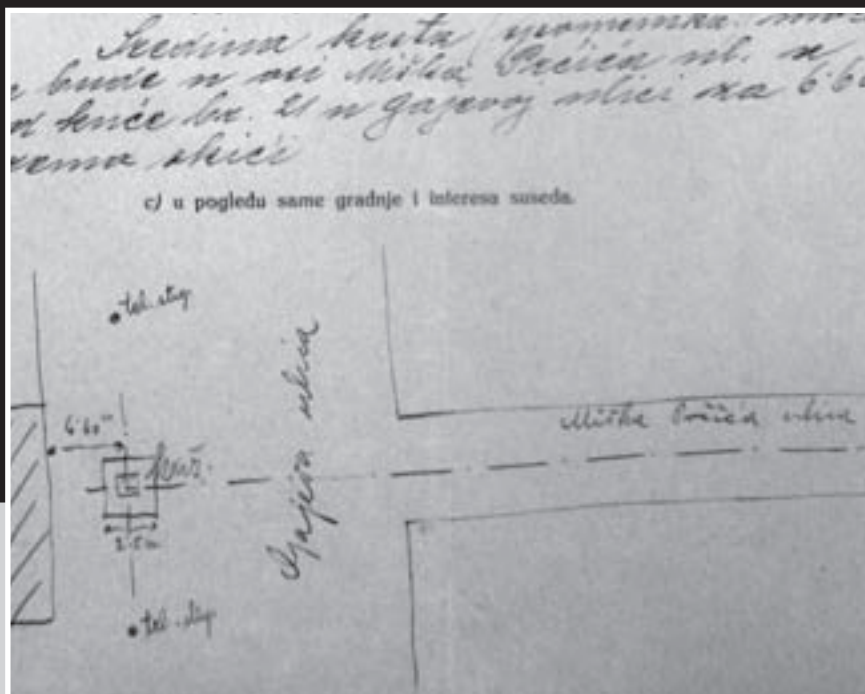 Sredina krsta (spomenika) mo
bude u osi Miška Prčića ul. u
kuće br. 21 u Gajevoj ulici za 6·6
prema skici
c) u pogledu same gradnje i interesa suseda.
tel. stup
6·60 m
Križ.
2·5 m
tel. stup
Gajeva ulica
Miška Prčića ulica